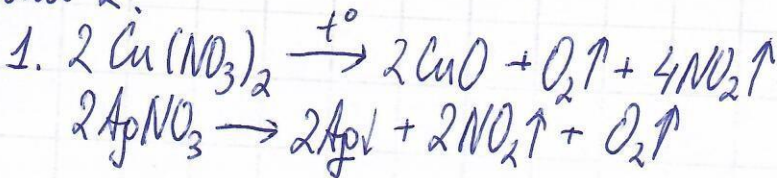 1. 2Cu(NO₃)₂ —t°→ 2CuO + O₂↑ + 4NO₂↑
2AgNO₃ → 2Ag↓ + 2NO₂↑ + O₂↑